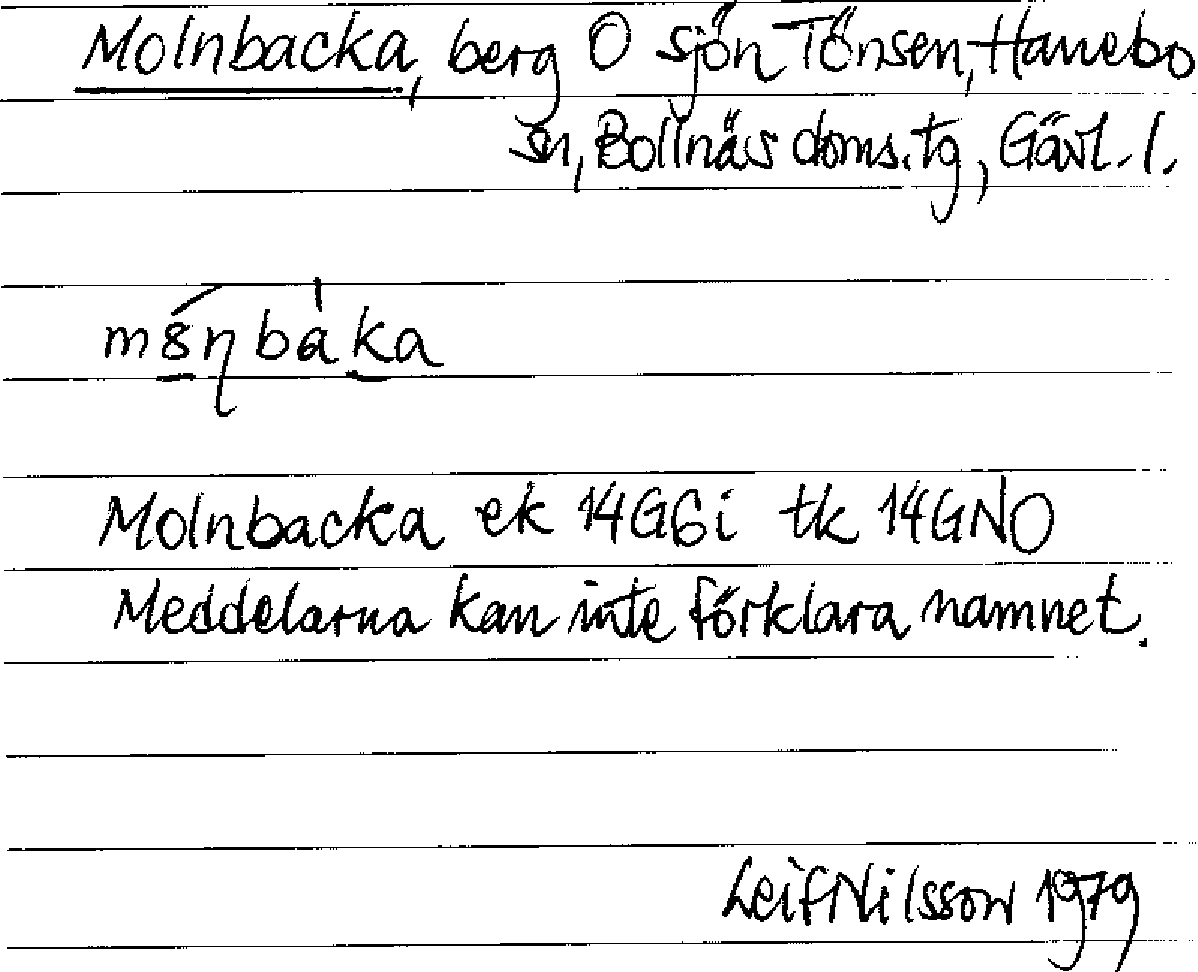 Molnbacka, berg O sjön Tönsen, Hanebo
sn, Bollnäs doms.tg, Gävl. l.
Molnbacka ek 14G6i tk 14GNO
Meddelarna kan inte förklara namnet.
Leif Nilsson 1979